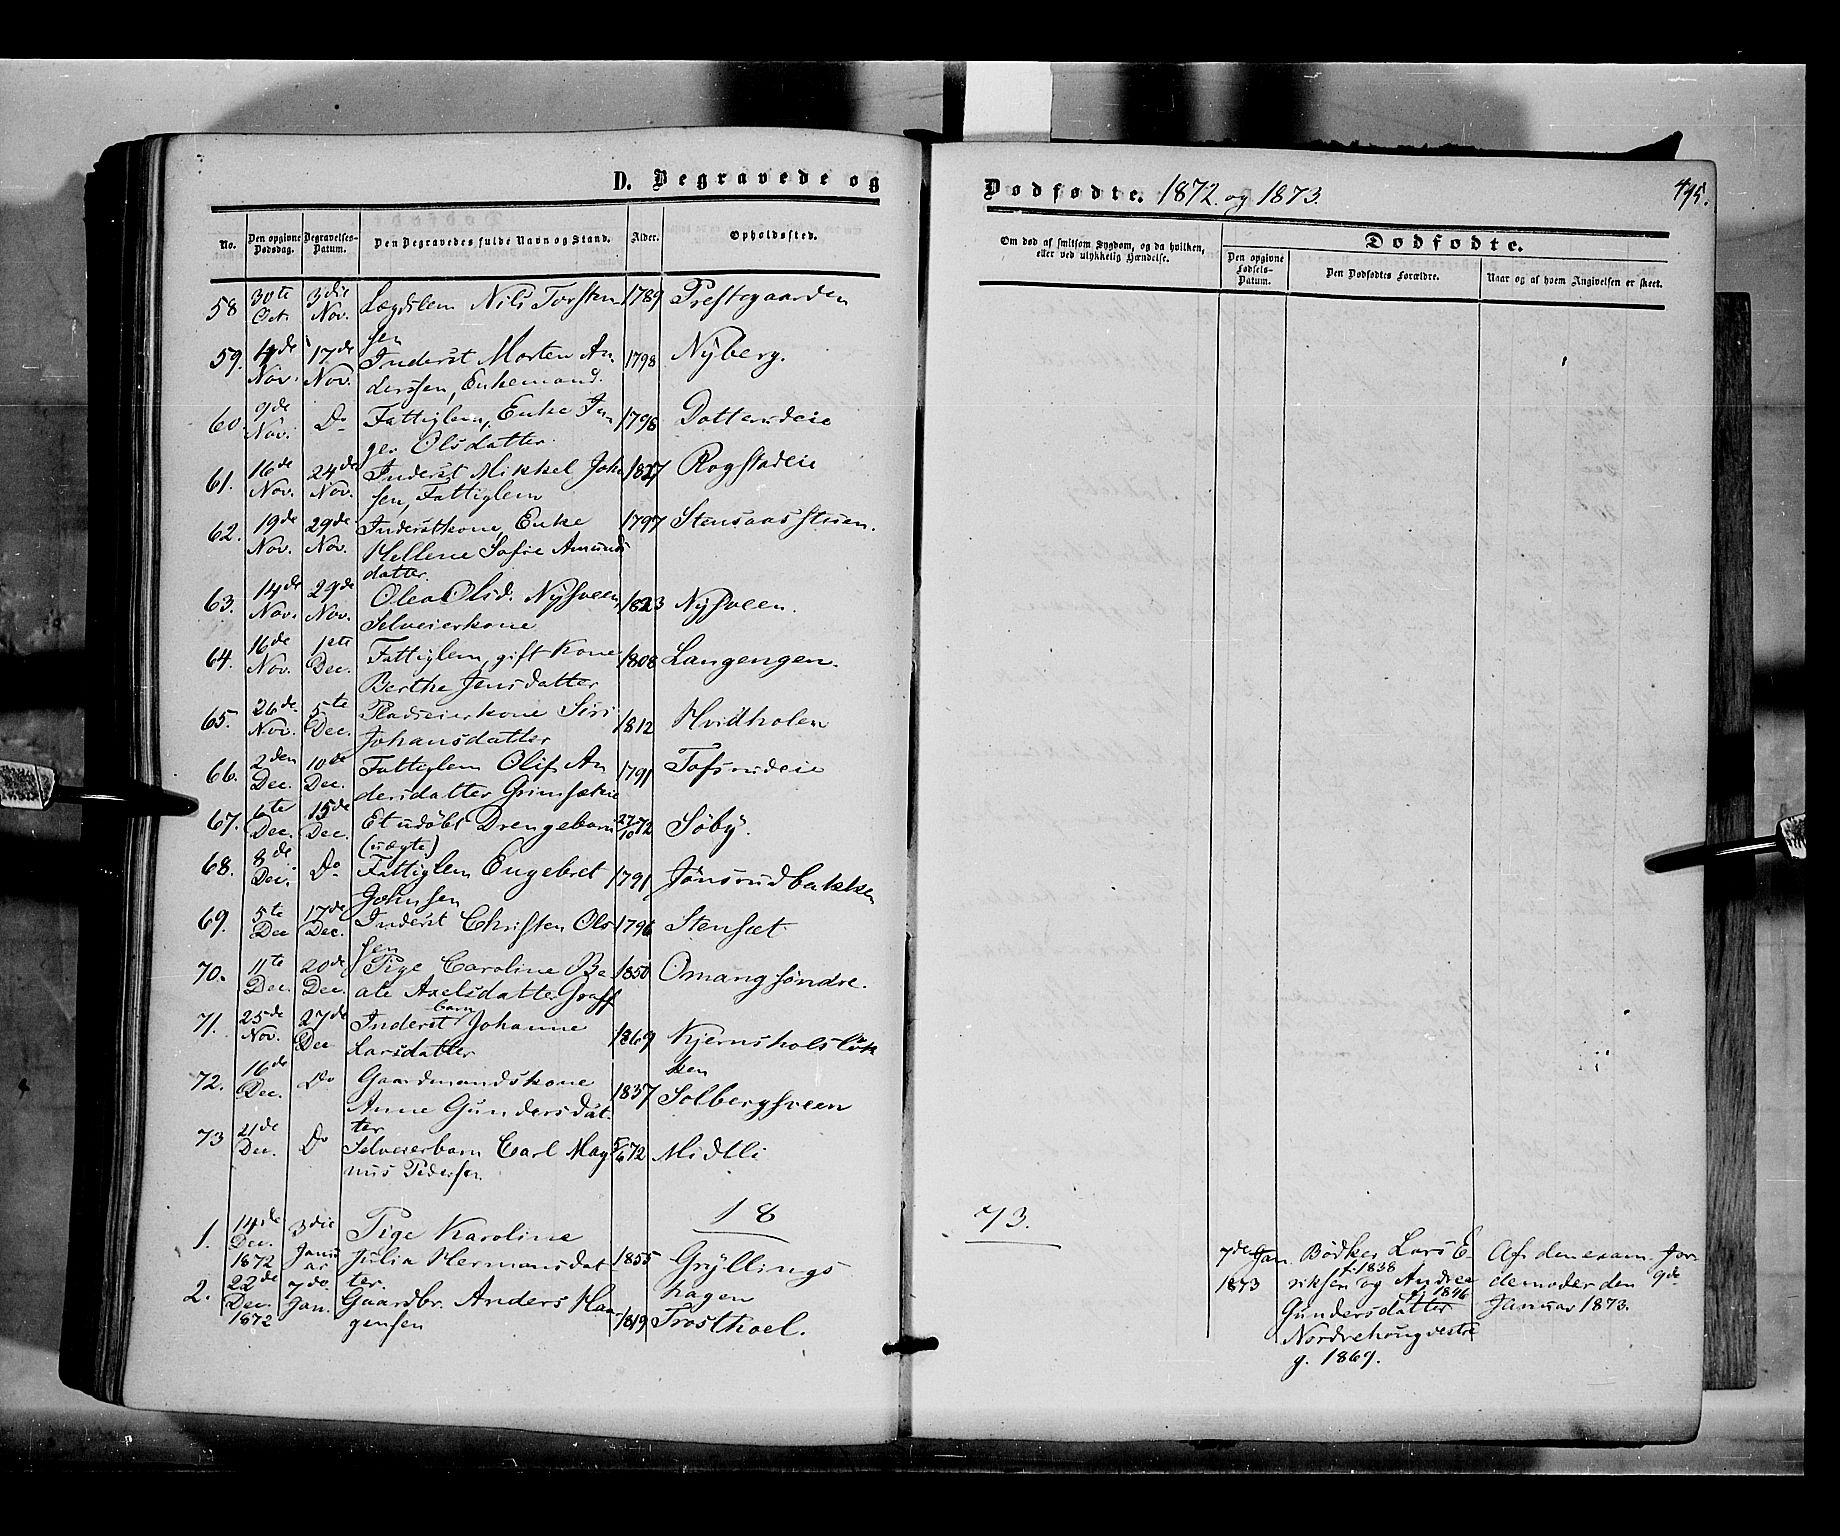 D. Begravede og
No. Den opgivne Dødsdag. Begravelses-Datum. Den Begravedes fulde Navn og Stand. Alder. Opholdssted.
58 30te Oct. 3die Nov. Lægdslem Nils Torsten- 1789 Prestegaarden
sen
59. 4de Nov. 17de Nov. Inderst Morten An- 1798 Nyberg.
derssen, Enkemand.
60. 9de Nov. Do Fattiglem, Enke In- 1796 Dotterudeie
ger Olsdatter
61. 16de Nov. 24de Nov. Inderst Mikkel Joh- 1827 Rogstadeie
sen, Fattiglem
62. 19de Nov. 29de Nov. Inderstkone, Enke 1797 Stensaasstuen.
Hellene Sofie Amunds
datter.
63. 14de Nov. 29de Nov. Olea Olsd. Nysveen 1823 Nysveen.
Selveierkone
64. 16de Nov. 1ste Dec. Fattiglem, gift Kone 1808 Langengen.
Berthe Jensdatter
65. 26de Nov. 5te Dec. Pladseierkone Siri 1812 Hvidholen
Johansdatter
66. 2den Dec. 10de Dec. Fattiglem Olif An 1791 Tofsrudeie
dersdatter
67. 6te Dec. 15de Dec. Et udöbt Drengebarn 27/10 72 Söby.
(uægte)
68. 8de Dec. Do Fattiglem Engebret 1791 Jönsrudbakken
Johnsen
69. 5te Dec 17de Dec. Inderst Christen Ols 1796 Stensæt
sen
70. 11te Dec. 20de Dec. Pige Caroline Be- 1850 Omang söndre.
ate Axelsdatter Graff
71. 25de Nov. 27de Dec Inderst barn Johanne 1869 Kjernsholslök
Larsdatter ken
72. 16de Dec. Do Gaardmandskone 1837 Solbergsveen
Anne Gundersdat
ter
73 21de Dec. Do Selveierbarn Carl Mag 5/6 72 Midtli
nus Pedersen
18
1. 14de Dec. 1872 3die Januar Pige Karoline
Julia Hermansdat 1855 Gryllings
ter. hagen
2. 22de Dec. 1872 7de Jan. Gaardbr. Anders Haa 1819 Frosthoel.
gensen
Dødfødte. 1872. og 1873. 495.
Om død af smitsom Sygdom, og da hvilken,
eller ved ulykkelig Hændelse.
Dødfødte.
Den opgivne Fødsels-Datum. Den Dødfødtes Forældre. Naar og af hvem Angivelsen er skeet.
73.
7de Jan. Bödker Lars E- Af den exam. Jor-
f. 1838
1873 riksen og Andrea demoder den 9de
f. 1846
Gundersdatter Januar 1873.
Nordrehougvestre
g. 1869.